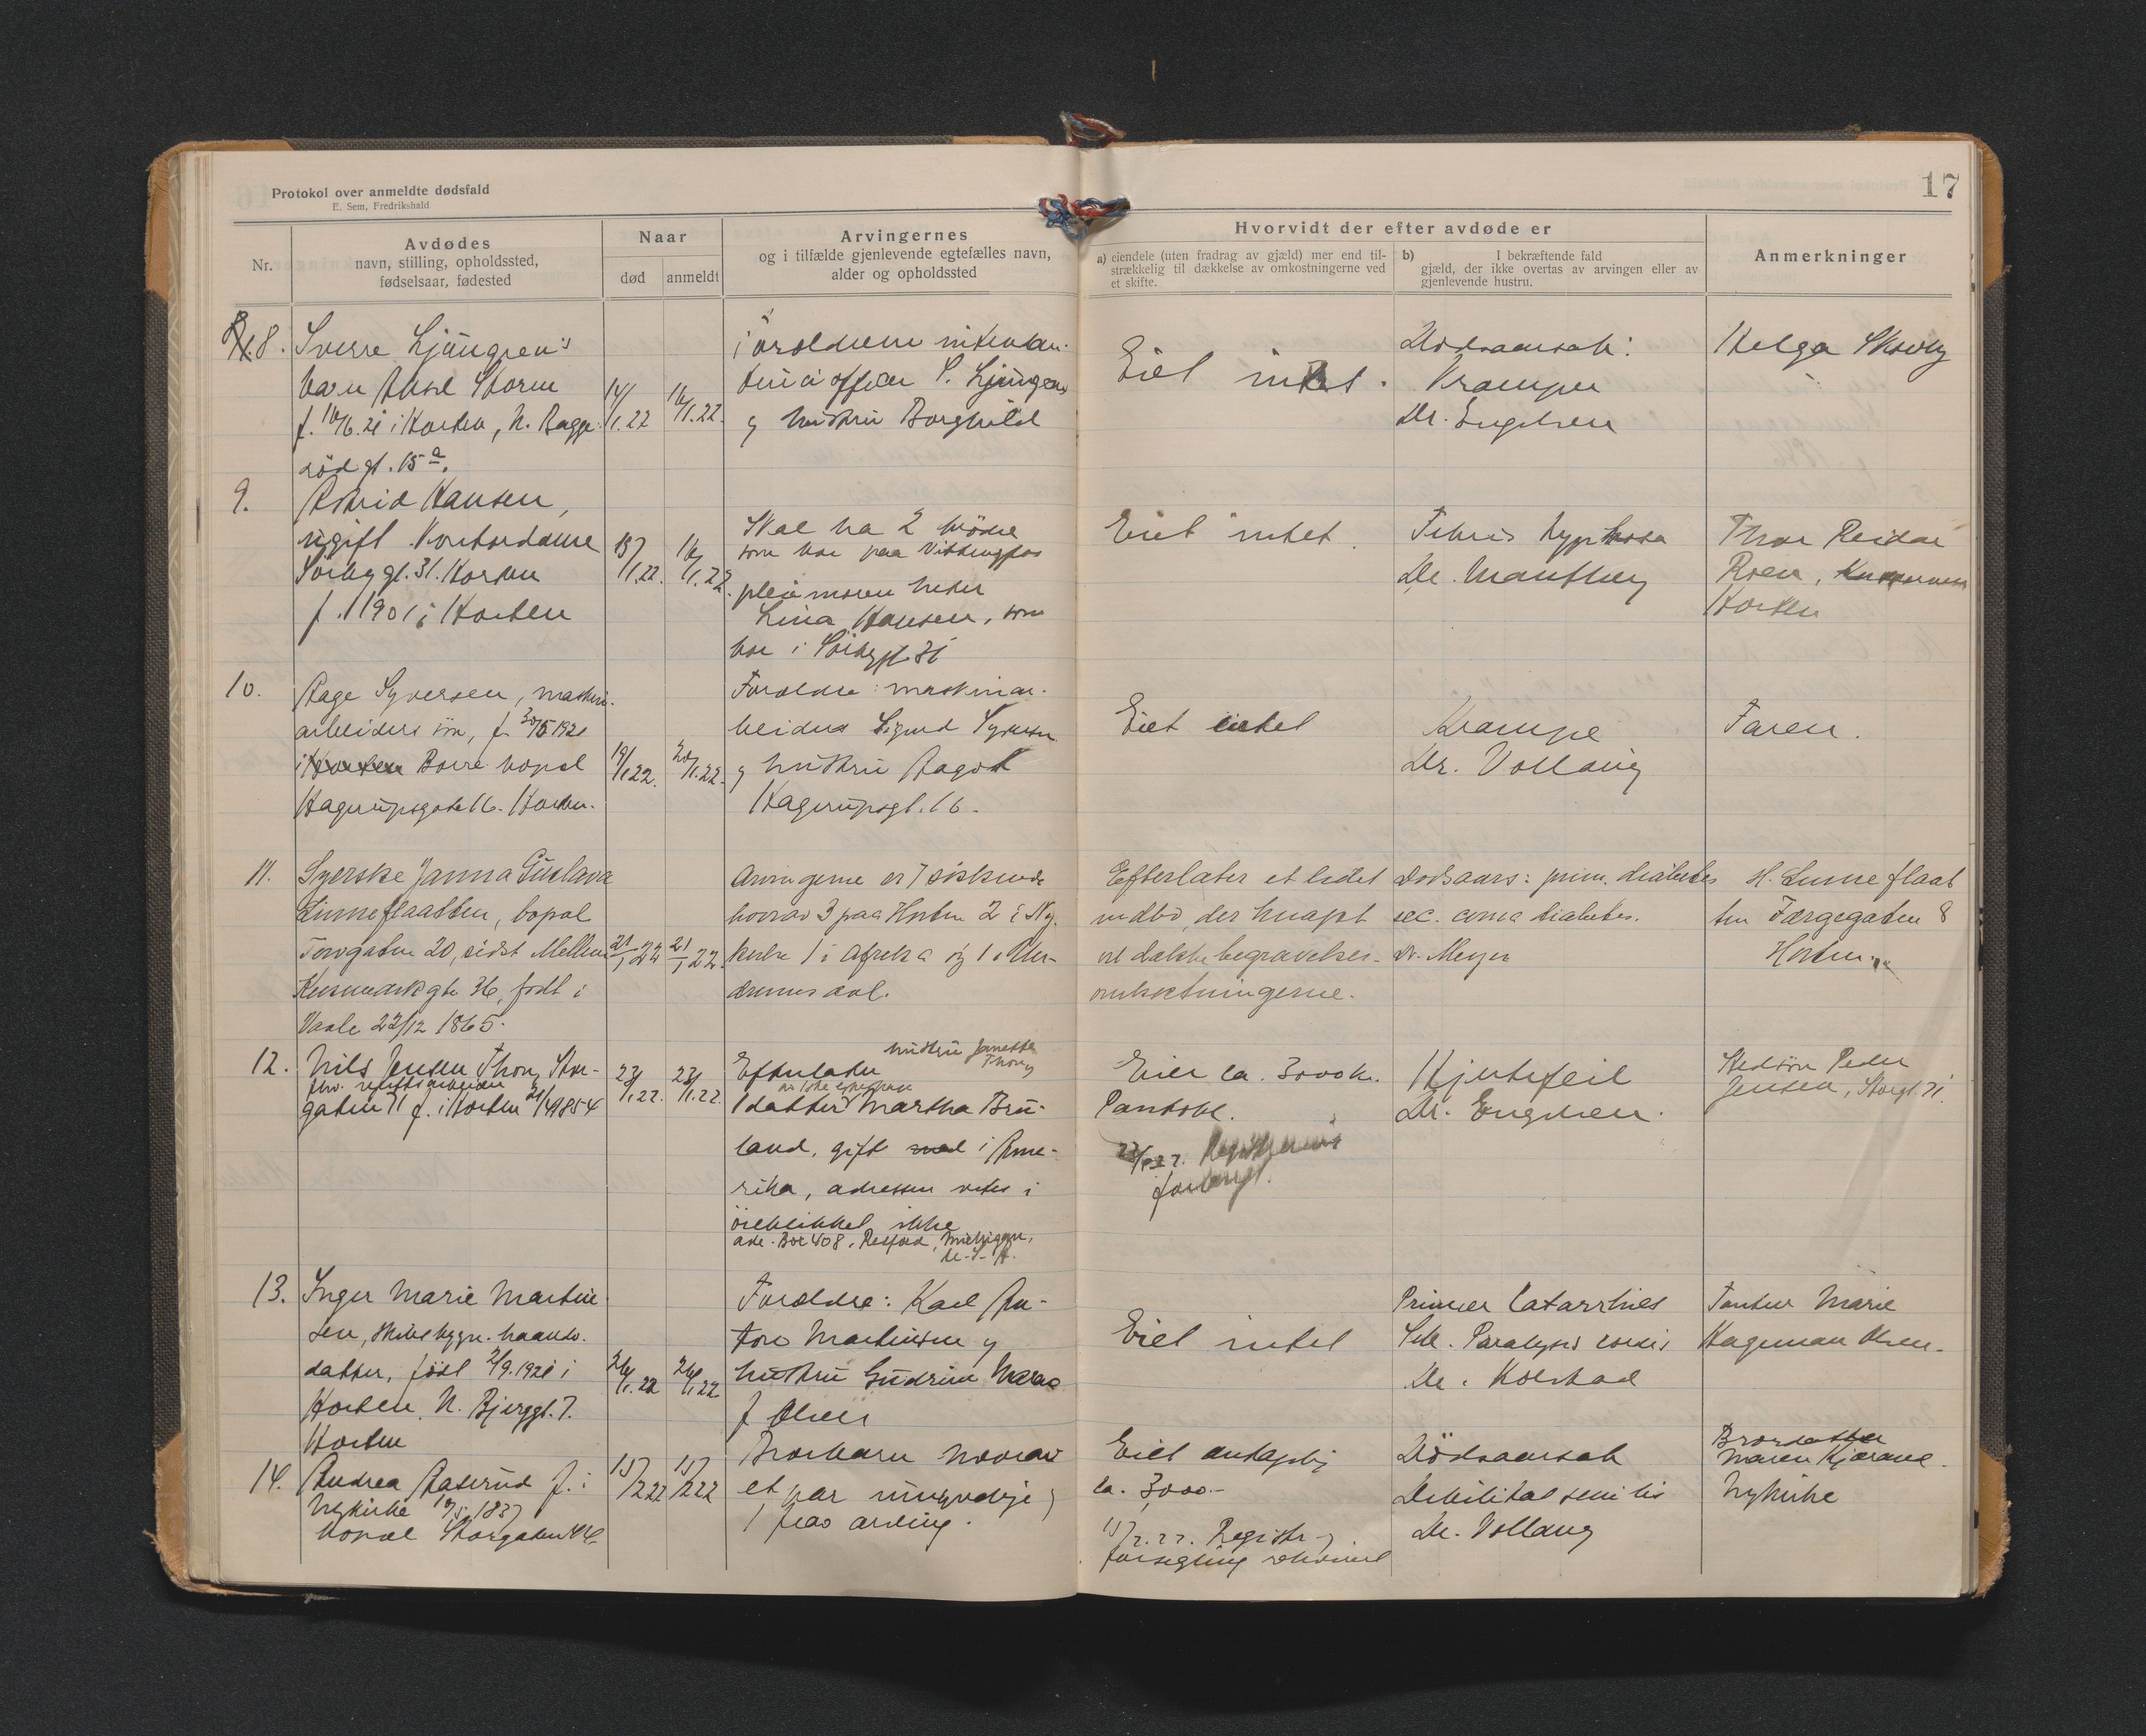 Protokol over anmeldte dødsfald
E. Sem, Fredrikshald
17
Nr.
Avdødes
navn, stilling, opholdssted,
fødselsaar, fødested
Naar
død
anmeldt
Arvingernes
og i tilfælde gjenlevende egtefælles navn,
alder og opholdssted
Hvorvidt der efter avdøde er
a) eiendele (uten fradrag av gjæld) mer end til-
strækkelig til dækkelse av omkostningerne ved
et skifte.
b) I bekræftende fald
gjæld, der ikke overtas av arvingen eller av
gjenlevende hustru.
Anmerkninger
8.
Sverre Ljungren's
barn Storm
i Horten, N. Bagge
rød gt. 15a.
14/1.22
16/1.22.
Forældrene intendan-
turofficer S. Ljungren
og hustru Borghild
Eiet intet.
Dødsaarsak:
Kramper
Dr. Engelsen
Helga
9.
Astrid Hansen,
ugift Kontordame
Sørbygt. 31. Horten
f. 1901 i Horten
15/1.22.
16/1.22.
Skal ha 2 brødre
som bor paa Vittingfos
pleiemoren heter
Lina Hansen, som
bor i Sørbygt. 31
Eiet intet.
Febris
Dr.
Thor Reidar
Roen,
Horten
10.
Aage Syversen, maskin-
arbeiders søn, f. 1921
i Horten Borre bopæl
Hagerupsgate 16. Horten.
19/1.22.
20/1.22.
Forældre: maskinar-
beider Sigurd Syversen
og hustru Aagot
Hagerupsgt. 16.
Eiet intet
Krampe
Dr. Vollaug
Faren.
11.
Syerske Janna Gustava
Linneflaatten, bopæl
Torvgaten 20, sidst Mellem
gt. 36, født i
Vaale 22/12 1865.
21/1 22
21/1 22.
Arvingerne er 7 søskende
hvorav 3 paa Horten 2 i Ny-
kirke 1 i Afrika og 1 i Un-
drumsdal.
Efterlater et litet
indbo, der knapt
vil dække begravelses-
omkostningerne.
Dødsaars: prim. diabetes
sec. coma diabetes.
Dr. Meyer
H. Linneflaat
ten Færgegaten 8
Horten.
12.
Nils Jensen Thon, Stor-
fhv. verftsarbeider
gaten 71 f. i Horten 1854
23/1.22.
23/1.22.
Efterlater hustru Janette
Thon
1 datter Martha Bru-
land, gift med i Ame-
rika, adressen vites i
øieblikket ikke
adr. Box 408, Michigan,
U.S.A.
Eier ca. 3000 kr.
Pantobl.
Hjertefeil
Dr. Engelsen.
Stedsøn Peder
Jensen, Storgt. 71.
13.
Inger Marie Martin
sen, skibsbygn. haandv.
datter, født 2/9.1921 i
Horten, N. Bjerggt. 7.
Horten
24/1.22
26/1.22
Forældre: Karl An-
ton Martinsen og
hustru Gudrun Marie
f Olsen
Eiet intet
Primær Catarrhus
Sek. Paralysis cordis
Dr. Kolstad
Tanten Marie
Hageman Olsen.
14.
Andrea Aaserud f. i
Nykirke 1837
bopæl Storgaten
15/2 22
15/2 22
Brorbarn hvorav
et par umyndige
1 arving.
Eiet antagelig
ca. 3000.-
15/2.22. Registr. og
forsegling
Dødsaarsak
Debilitas senilis
Dr. Vollaug
Brordatter
Maren
Nykirke